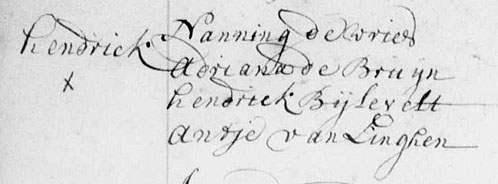 hendrick Nanning de vries
x Adriana de Bruijn
hendrick Bijlevelt
antje van Linghen